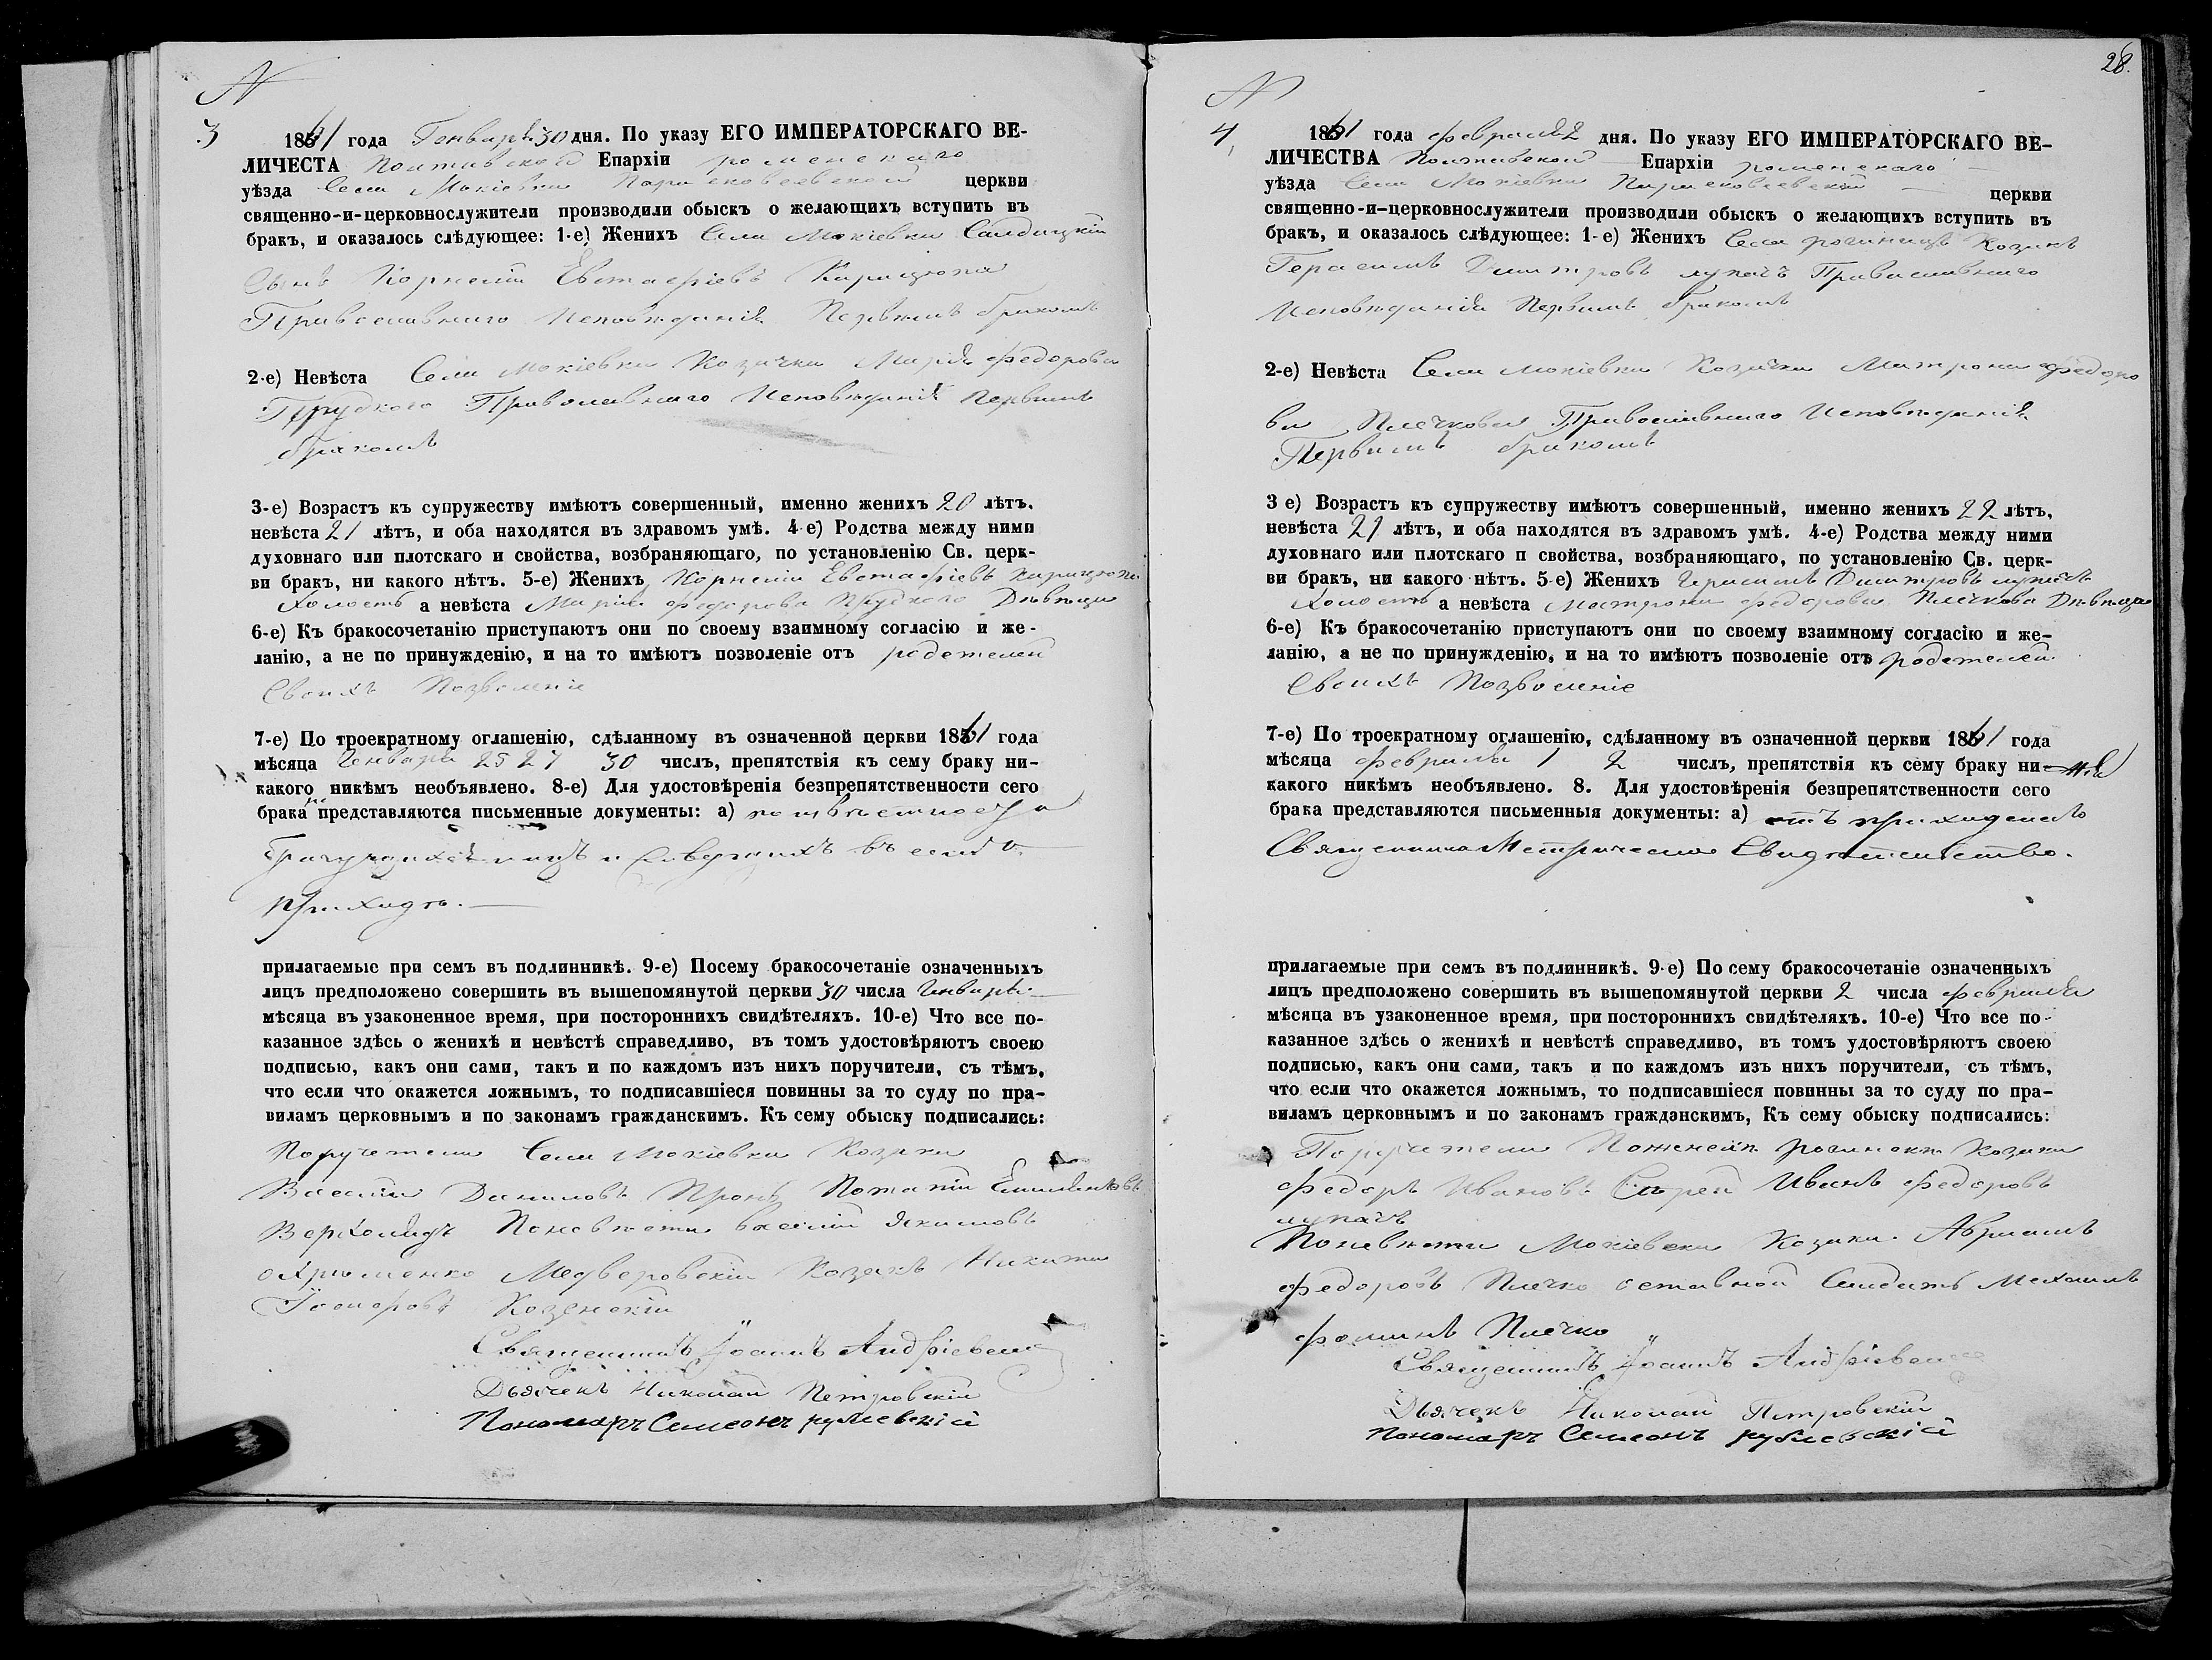 N
3
1861 года Генваря 30 дня. По указу ЕГО ИМПЕРАТОРСКАГО ВЕ-
ЛИЧЕСТА Полтавской Епархіи роменскаго
уѣзда Села Мокіевки Параскевіевской церкви
священно-и-церковнослужители производили обыскъ о желающихъ вступить въ
бракъ, и оказалось слѣдующее: 1-е) Женихъ Села Мокіевки Салдацкій
Сынъ Корнелій Евстафіевъ
Православнаго Исповѣданія Первымъ бракомъ
2-е) Невѣста Села Мокіевки Козачка Марія Федорова
Православнаго Исповѣданія первымъ
бракомъ
3-е) Возрастъ къ супружеству имѣютъ совершенный, именно женихъ 20 лѣтъ.
невѣста 21 лѣтъ, и оба находятся въ здравомъ умѣ. 4-е) Родства между ними
духовнаго или плотскаго и свойства, возбраняющаго, по установленію Св. церк-
ви бракъ, ни какого нѣтъ. 5-е) Женихъ Корнелій Евстафіевъ
Холостъ а невѣста Марія Федорова Дѣвица
6-е) Къ бракосочетанію приступаютъ они по своему взаимному согласію и же-
ланію, а не по принужденію, и на то имѣютъ позволеніе отъ родетелей
Своихъ Позволеніе
7-е) По троекратному оглашенію, сдѣланному въ означенной церкви 1861 года
мѣсяца Генваря 25 27 30 числъ, препятствія къ сему браку ни-
какого никѣмъ необъявлено. 8-е) Для удостовѣренія безпрепятственности сего
брака не представляются письменные документы: а) по извѣстности
приходѣ.
прилагаемые при семъ въ подлинникѣ. 9-е) Посему бракосочетаніе означенныхъ
лицъ предположено совершить въ вышепомянутой церкви 30 числа Генваря
мѣсяца въ узаконенное время, при постороннихъ свидѣтеляхъ. 10-е) Что все по-
казанное здѣсь о женихѣ и невѣстѣ справедливо, въ томъ удостовѣряютъ своею
подписью, какъ они сами, такъ и по каждомъ изъ нихъ поручители, съ тѣмъ,
что если что окажется ложнымъ, то подписавшіеся повинны за то суду по пра-
виламъ церковнымъ и по законамъ гражданскимъ. Къ сему обыску подписались:
Поручетели Села Мокіевки Козаки
Василій Даниловъ Пронь Потапій
Поневѣсти василій Якимовъ
Охрименко Козакъ Никита
Священникъ Іоаннъ Андріевскій
Дьячекъ Николай Петровскій
Пономаръ Симеонъ рублевскій
28.
N
4,
1861 года февраля 2 дня. По указу ЕГО ИМПЕРАТОРСКАГО ВЕ-
ЛИЧЕСТВА Полтавской Епархіи роменскаго
уѣзда Села Мокіевки Параскевіевской церкви
священно-и-церковнослужители производили обыскъ о желающихъ вступить въ
бракъ, и оказалось слѣдующее: 1-е) Женихъ Села рогинецъ Козакъ
Герасимъ Димитровъ лупачъ Православнаго
Исповѣданія Первымъ бракомъ
2-е) Невѣста Села Мокіевки Козачка Матрона Федоро
ва Плечковна Православнаго Исповѣданія
Первымъ бракомъ
3 е) Возрастъ къ супружеству имѣютъ совершенный, именно женихъ 22 лѣтъ,
невѣста 21 лѣтъ, и оба находятся въ здравомъ умѣ. 4-е) Родства между ними
духовнаго или плотскаго п свойства, возбраняющаго, по установленію Св. церк-
ви бракъ, ни какого нѣтъ. 5-е) Женихъ Герасимъ Димитровъ лупачъ
Холостъ а невѣста Мотрона федорова Плечкова Дѣвица
6-е) Къ бракосочетанію приступаютъ они по своему взаимному согласію и же-
ланію, а не по принужденію, и на то имѣютъ позволеніе отъ родетелей
Своихъ Позволеніе
7-е) По троекратному оглашенію, сдѣланному въ означенной церкви 1861 года
мѣсяца февраля 1 2 числъ, препятствія къ сему браку ни-
какого никѣмъ необъявлено. 8. Для удостовѣренія безпрепятственности сего
брака представляются письменныя документы: а) отъ приходскаго
Священника Метрическое Свидѣтельство.
прилагаемые при семъ въ подлинникѣ. 9-е) По сему бракосочетаніе означенныхъ
лицъ предположено совершить въ вышепомянутой церкви 2 числа февраля
мѣсяца въ узаконенное время, при постороннихъ свидѣтеляхъ. 10-е) Что все по-
казанное здѣсь о женихѣ и невѣстѣ справедливо, въ томъ удостовѣряютъ своею
подписью, какъ они сами, такъ и по каждомъ изъ нихъ поручители, съ тѣмъ,
что если что окажется ложнымъ, то подписавшіеся повинны за то суду по пра-
виламъ церковнымъ и по законамъ гражданскимъ, Къ сему обыску подписались:
Поручатели Козаки
Федоръ Ивановъ Иванъ Федоровъ
лупачъ
Поневѣсти Мокіевски Козаки. Абрамъ
Федоровъ Плечко оставной Салдатъ Механлъ
фоминъ Плечко
Священникъ Іоаннъ Андріевскій
Дьячекъ Николай Петровскій
Пономаръ Симеонъ рублевскій